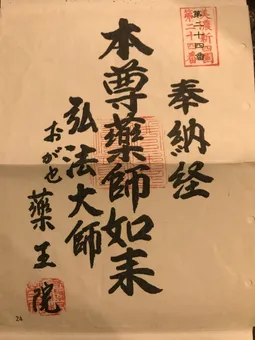 美濃新四国
第二十四番
奉納経
本尊薬師如来
弘法大師
おがせ 薬王院
24